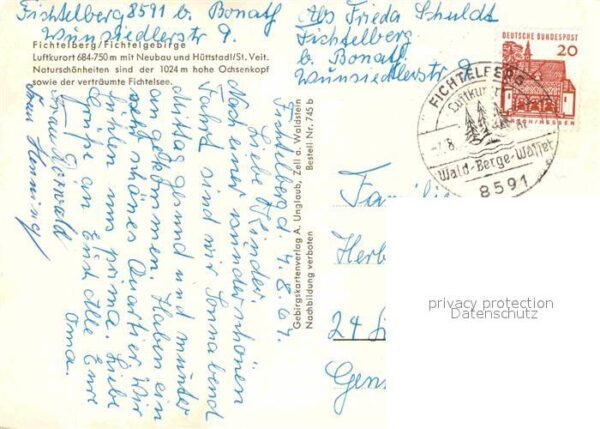 Fichtelberg 8591 b. Bonath
Wunsiedlerstr 9.
Fichtelberg/Fichtelgebirge
Luftkurort 684-750 m mit Neubau und Hüttstadl/St. Veit.
Naturschönheiten sind der 1024 m hohe Ochsenkopf
sowie der verträumte Fichtelsee.
Fichtelberg d. 4.8.64.
Liebe Kinder
Nach einer wunderschönen
Fahrt sind wir Sonnabend
Mittag gesund und munter
angekommen. Haben ein
sehr schönes Quartier. Wir
fühlen uns prima. Liebe
Grüße an Euch Alle Eure
Oma.
Frau
Frau Henning
Gebirgskartenverlag A. Unglaub, Zell a. Waldstein
Nachbildung verboten
Bestell Nr. 745 b
Abs Frieda Schuldt
Fichtelberg
b. Bonath
Wunsiedlerstr 9
DEUTSCHE BUNDESPOST
20
LORSCH/HESSEN
FICHTELBERG
Luftkurort
-7.8.
Wald-Berge-Wasser
8591
Familie
Herb
24
Gen
privacy protection
Datenschutz